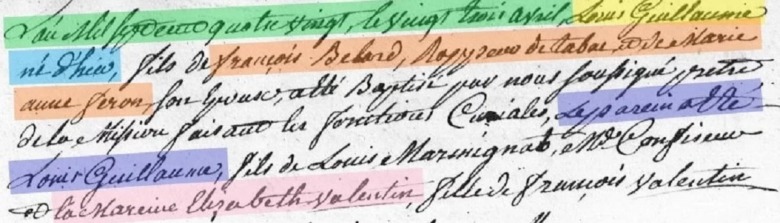 L'an Mil Sept Cent quatre vingt, le vingt trois avril, Louis Guillaume
né d'hier, fils de françois Belard, Rappeur de tabac, et de Marie
anne feron son Epouse, a été Baptisé par nous soussigné pretre
de la Mission faisant les fonctions Curiales, Le parein a été
Louis Guillaume, fils de Louis Marmignat, Md Confiseur
et la Mareine Elizabeth Valentin, fille de françois Valentin